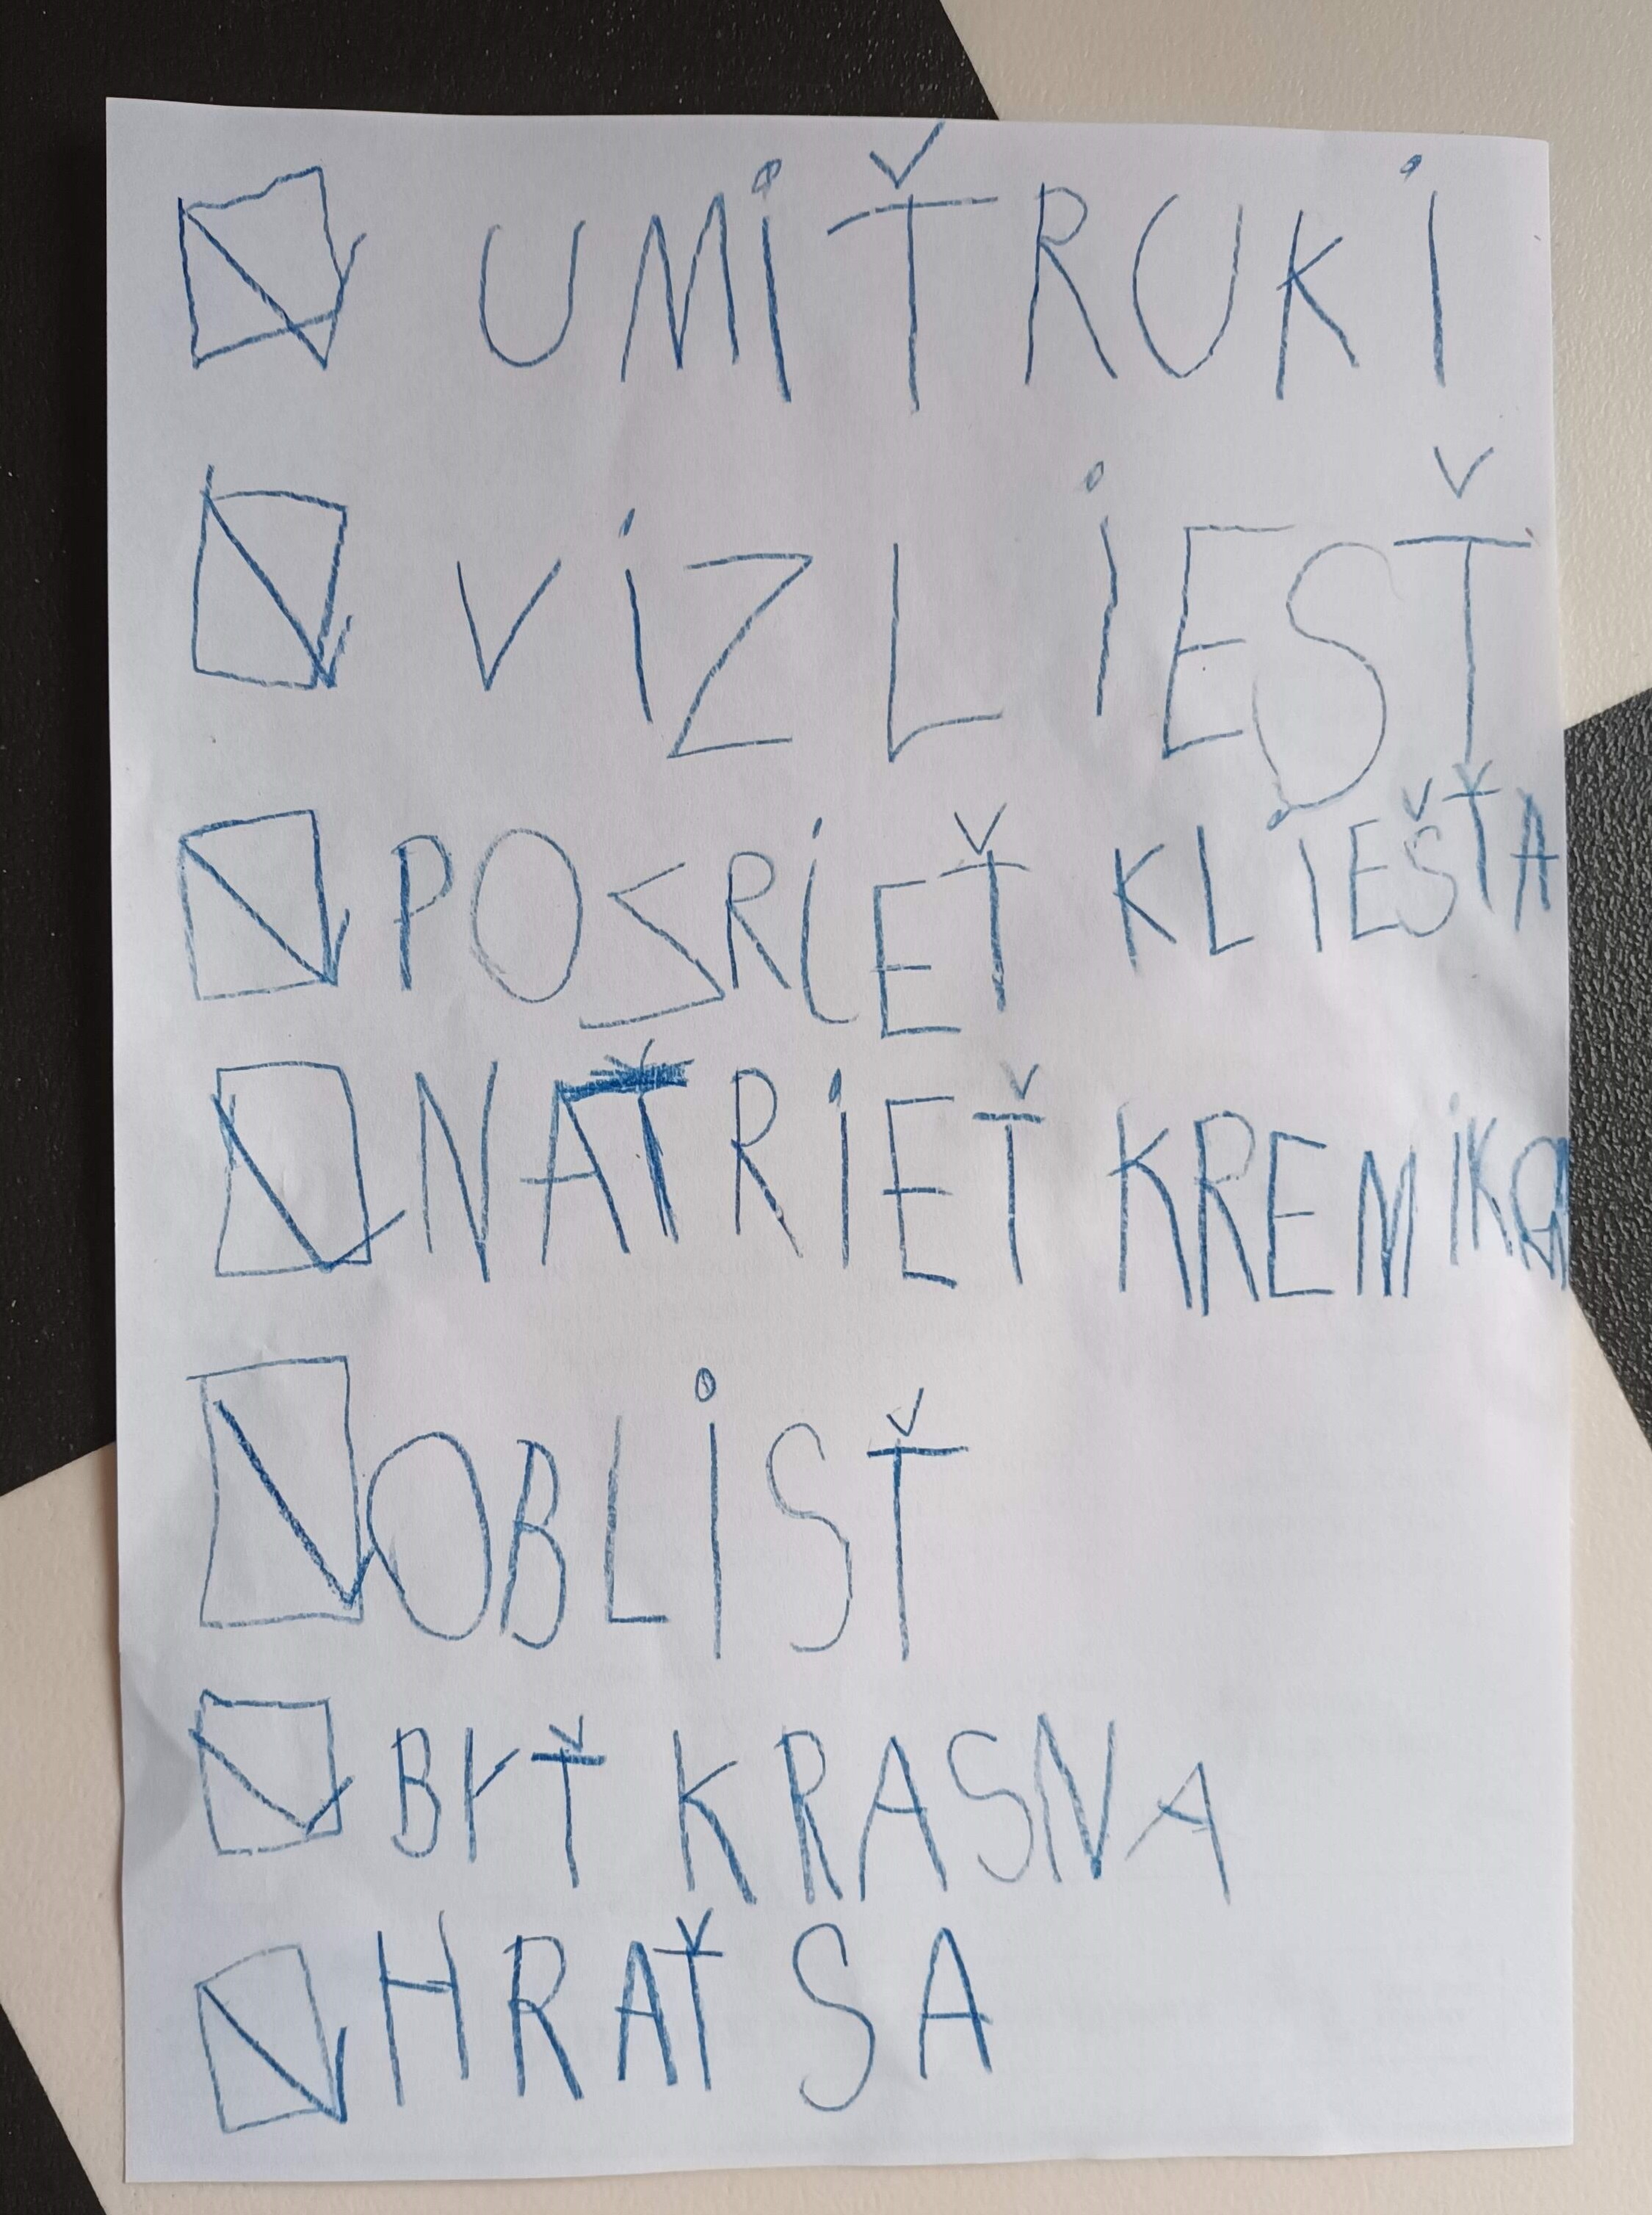 UMIŤ RUKI
VIZLIESŤ
POSRIEŤ KLIEŠŤA
NATRIEŤ
OBLISŤ
BYŤ KRASNA
HRAŤ SA